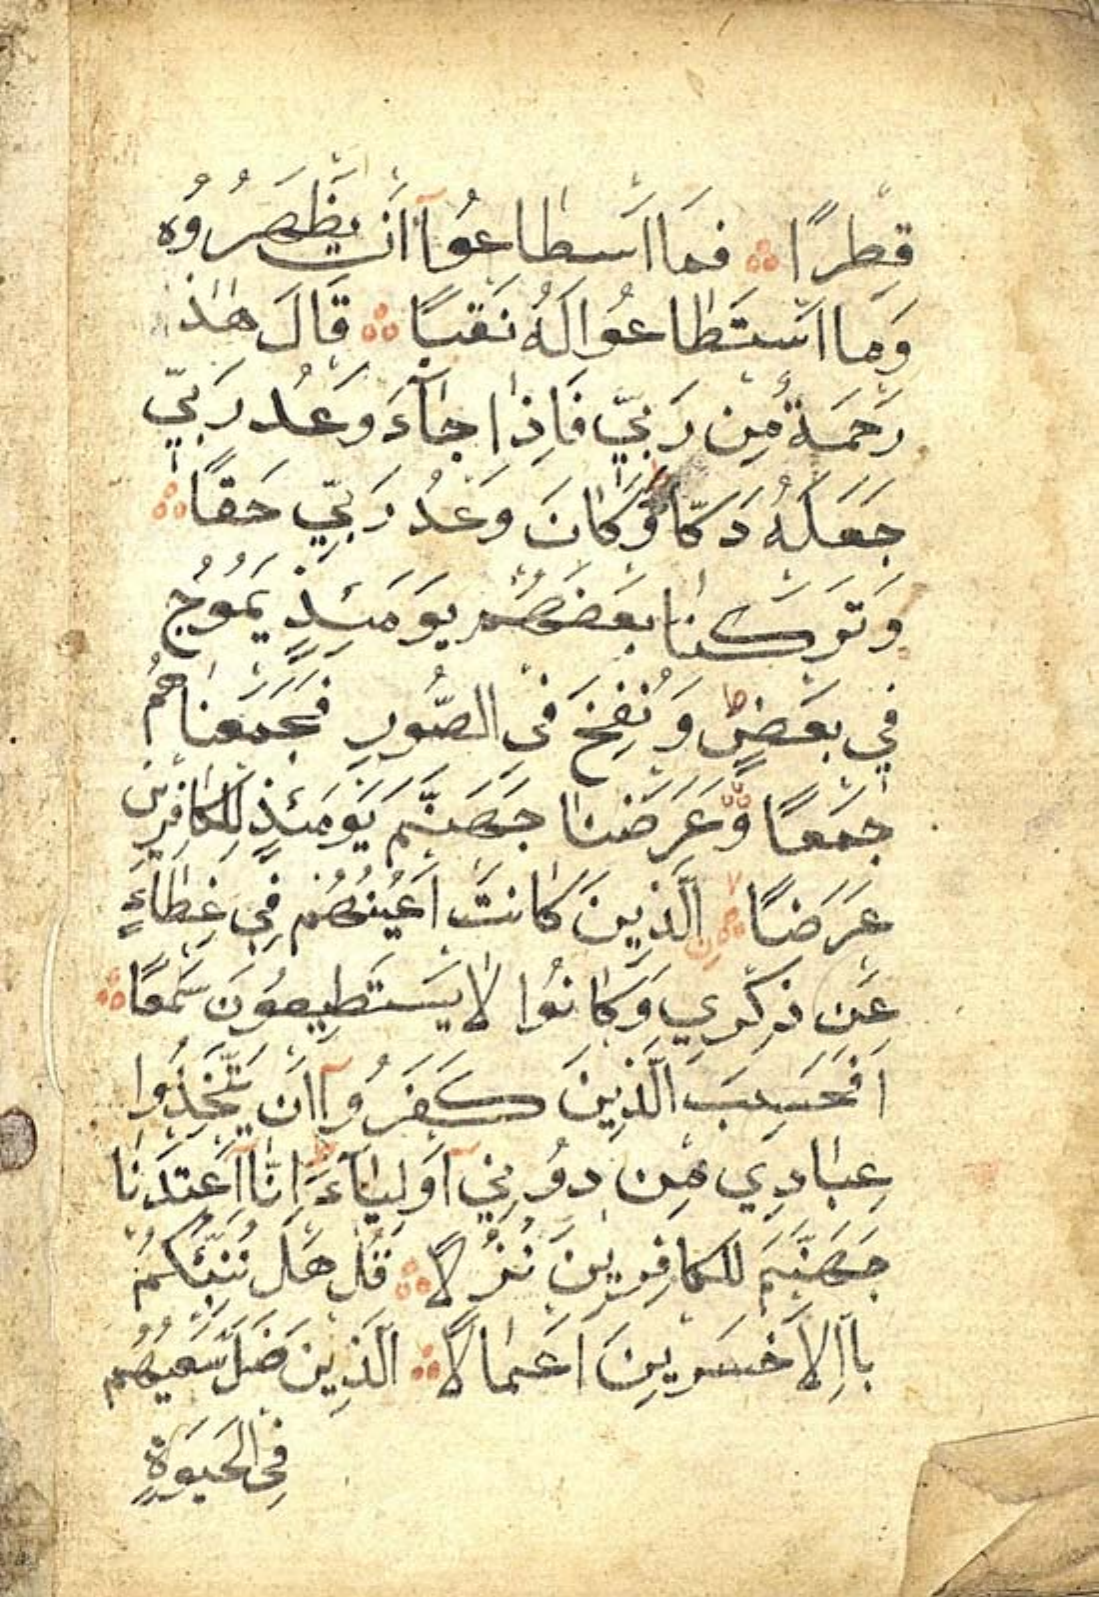 قِطْرًا ۞ فَمَا اسْطَاعُوآ اَنْ يَظْهَرُوُهُ
وَمَا اسْتَطَاعُوا لَهُ نَقْبًا ۞ قَالَ هٰذَا
رَحْمَةٌ مِنْ رَبِّي فَاِذَا جَآءَ وَعْدُ رَبِّي
جَعَلَهُ دَكّا وَّكَانَ وَعْدُ رَبِّي حَقًّا ۞
وَتَرَكْنَا بَعْضَهُمْ يَوْمَئِذٍ يَمُوُجُ
فِي بَعْضٍ ط وَنُفِخَ فِي الصُّورِ فَجَمَعْنَاهُمْ
جَمْعًا وَّعَرَضْنَا جَهَنَّمَ يَوْمَئِذٍ لِلْكَافِرِينَ
عَرْضًا ۞ الَّذِينَ كَانَتْ اَعْيُنُهُمْ فِي غِطَآءٍ
عَنْ ذِكْرِي وَكَانُوا لَا يَسْتَطِيعُونَ سَمْعًا ۞
اَفَحَسِبَ الَّذِينَ كَفَرُوآ اَنْ يَتَّخِذُوا
عِبَادِي مِنْ دُوُنِيآ اَوْلِيَآءَ ط اِنَّآ اَعْتَدْنَا
جَهَنَّمَ لِلْكَافِرِينَ نُزُلًا ۞ قُلْ هَلْ نُنَبِّئُكُمْ
بِالْاَخْسَرِينَ اَعْمَالًا ۞ الَّذِينَ ضَلَّ سَعْيُهُمْ
فِي الْحَيَوٰةِ